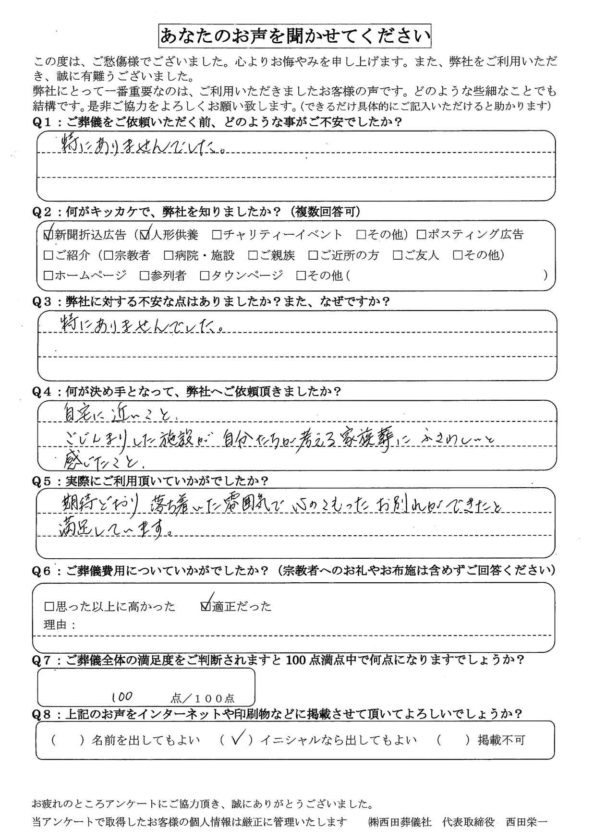 あなたのお声を聞かせてください
この度は、ご愁傷様でございました。心よりお悔やみを申し上げます。また、弊社をご利用いただ
き、誠に有難うございました。
弊社にとって一番重要なのは、ご利用いただきましたお客様の声です。どのような些細なことでも
結構です。是非ご協力をよろしくお願い致します。（できるだけ具体的にご記入いただけると助かります）
Ｑ１：ご葬儀をご依頼いただく前、どのような事がご不安でしたか？
特にありませんでした。
Ｑ２：何がキッカケで、弊社を知りましたか？（複数回答可）
☑新聞折込広告（☑人形供養　□チャリティーイベント　□その他）□ポスティング広告
□ご紹介（□宗教者　□病院・施設　□ご親族　□ご近所の方　□ご友人　□その他）
□ホームページ　□参列者　□タウンページ　□その他（　　　　　　　　　　）
Ｑ３：弊社に対する不安な点はありましたか？また、なぜですか？
特にありませんでした。
Ｑ４：何が決め手となって、弊社へご依頼頂きましたか？
自宅に近いこと、
こじんまりした施設が自分たちが考える家族葬にふさわしいと
感じたこと、
Ｑ５：実際にご利用頂いていかがでしたか？
期待どおり落ち着いた雰囲気で心のこもったお別れができたと
満足しています。
Ｑ６：ご葬儀費用についていかがでしたか？（宗教者へのお礼やお布施は含めずご回答ください）
□思った以上に高かった　☑適正だった
理由：
Ｑ７：ご葬儀全体の満足度をご判断されますと100点満点中で何点になりますでしょうか？
100　点／100点
Ｑ８：上記のお声をインターネットや印刷物などに掲載させて頂いてよろしいでしょうか？
（　）名前を出してもよい　（✓）イニシャルなら出してもよい　（　）掲載不可
お疲れのところアンケートにご協力頂き、誠にありがとうございました。
当アンケートで取得したお客様の個人情報は厳正に管理いたします　㈱西田葬儀社　代表取締役　西田栄一